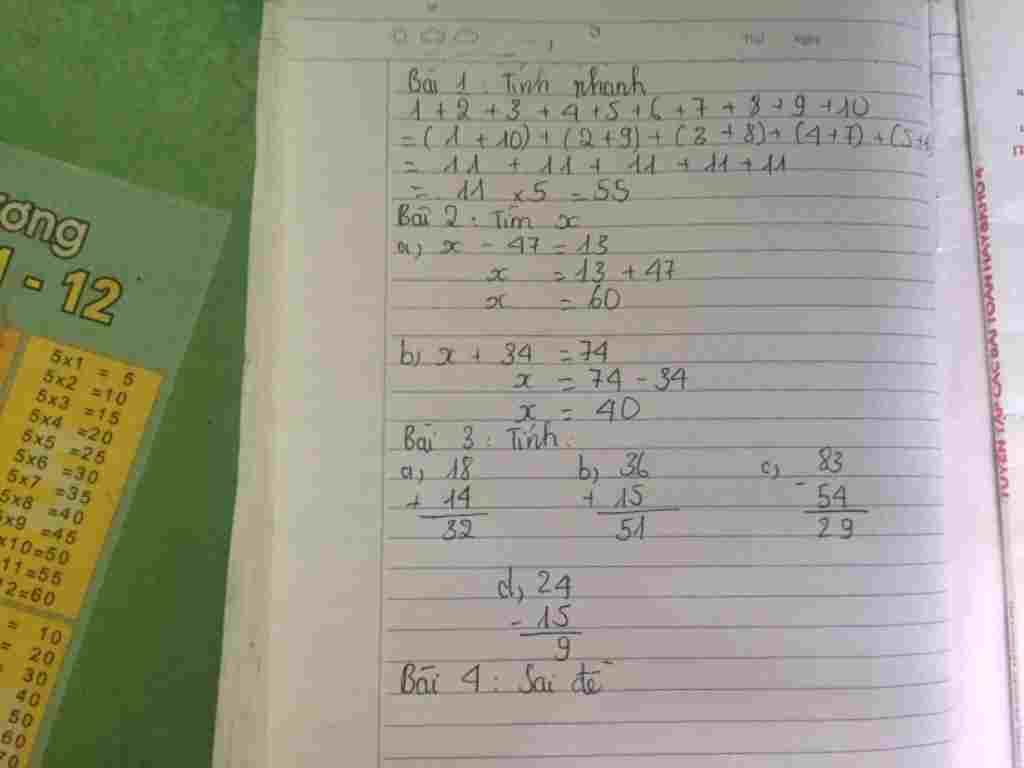 Thứ Ngày
Bài 1 : Tính nhanh
1 + 2 + 3 + 4 + 5 + 6 + 7 + 8 + 9 + 10
= ( 1 + 10) + (2 + 9) + (3 + 8) + (4 + 7) + (5 +
= 11 + 11 + 11 + 11 + 11
= 11 x 5 = 55
Bài 2 : Tìm x
a, x - 47 = 13
x = 13 + 47
x = 60
b, x + 34 = 74
x = 74 - 34
x = 40
Bài 3 : Tính :
a, 18 b, 36 c, 83
+ 14 + 15 - 54
32 51 29
d, 24
- 15
9
Bài 4 : Sai đề
ương
1 - 12
5x1 = 5
5x2 =10
5x3 =15
5x4 =20
5x5 =25
5x6 =30
5x7 =35
5x8 =40
5x9 =45
x10=50
11=55
12=60
= 10
= 20
= 30
40
50
60
70